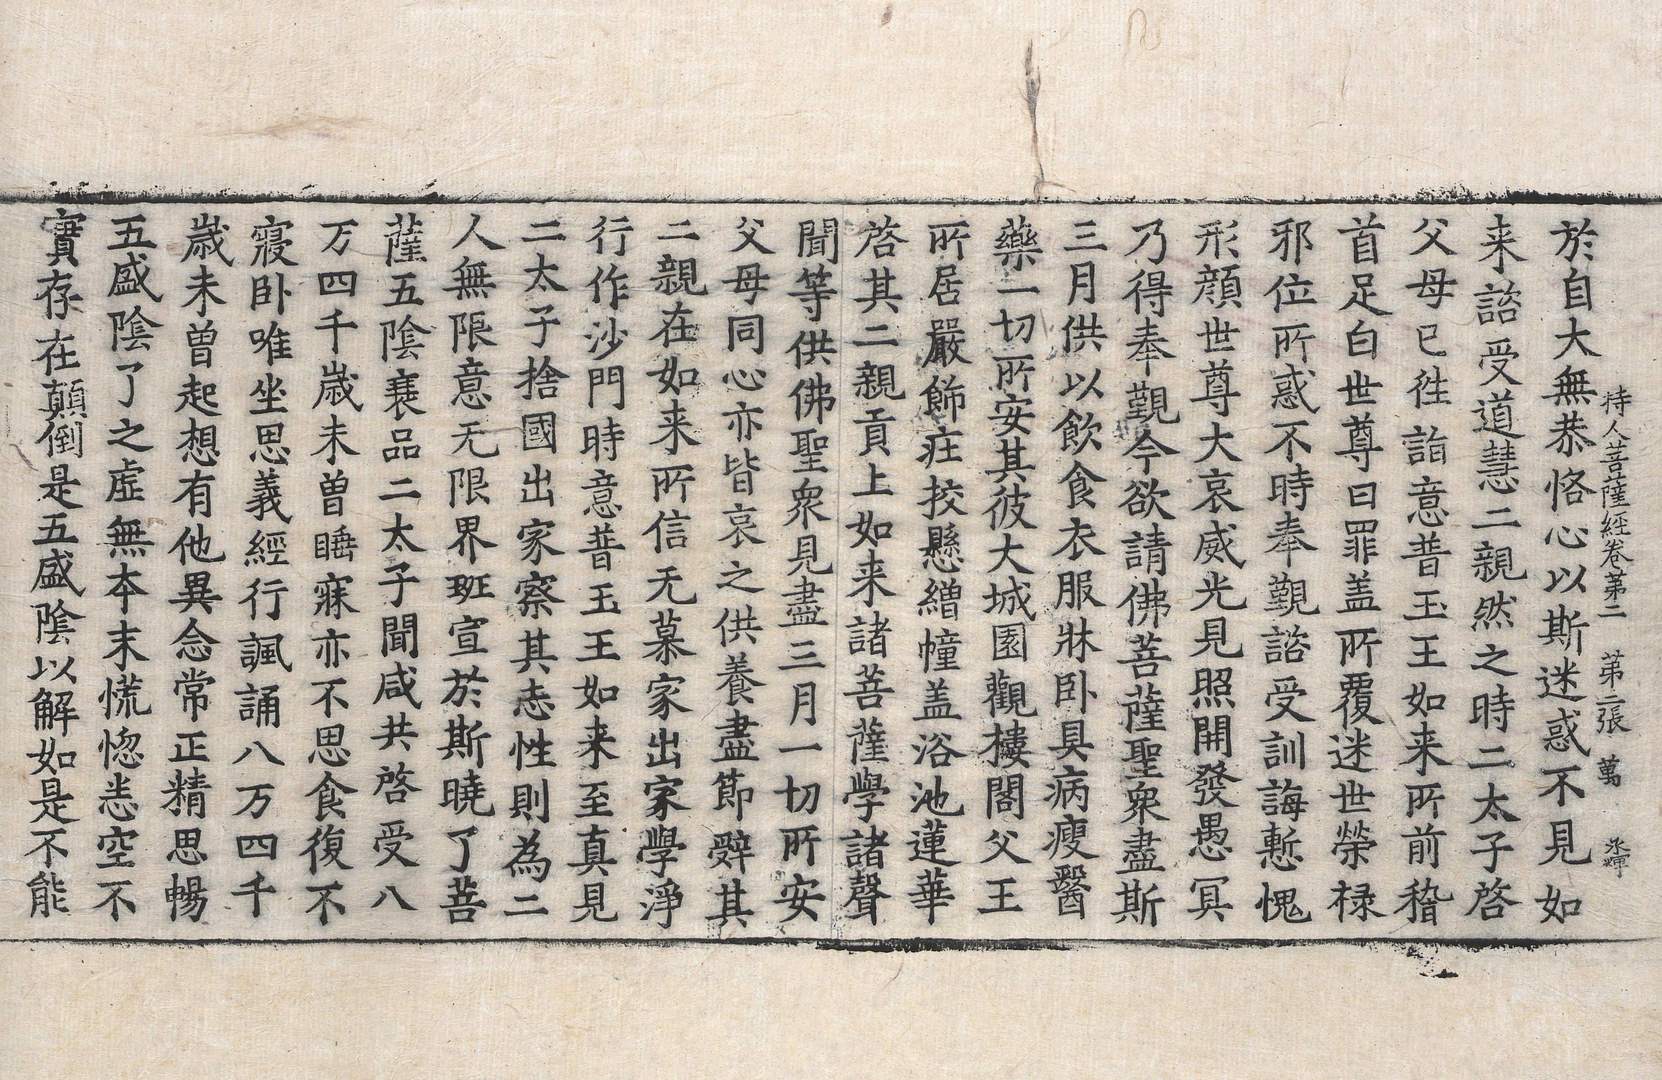 持人菩薩經卷第二　第二張　萬
於自大無恭恪心以斯迷惑不見如
来諮受道慧二親然之時二太子啓
父母已徃詣意普玉王如来所前稽
首足白世尊曰罪盖所覆迷世榮禄
邪位所惑不時奉覲諮受訓誨慙愧
形顔世尊大哀威光見照開發愚冥
乃得奉覲今欲請佛菩薩聖衆盡斯
三月供以飲食衣服牀卧具病瘦醫
藥一切所安其彼大城園觀樓閣父王
所居嚴飾疘挍懸繒幢盖浴池蓮華
啓其二親貢上如来諸菩薩學諸聲
聞等供佛聖衆見盡三月一切所安
父母同心亦皆哀之供養盡節辤其
二親在如来所信无慕家出家學淨
行作沙門時意普玉王如来至真見
二太子捨國出家察其志性則為二
人無限意无限界班宣於斯曉了菩
薩五陰衰品二太子聞咸共啓受八
万四千歲未曾睡寐亦不思食復不
寢卧唯坐思義經行諷誦八万四千
歲未曾起想有他異念常正精思暢
五盛陰了之虛無本末慌惚恙空不
實存在顛倒是五盛陰以解如是不能